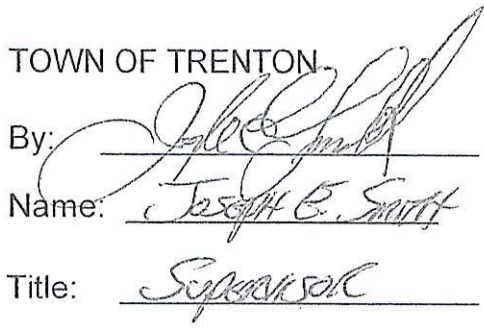 TOWN OF TRENTON
By:
Name: JOSEPH E. SMITH
Title: SUPERVISOR